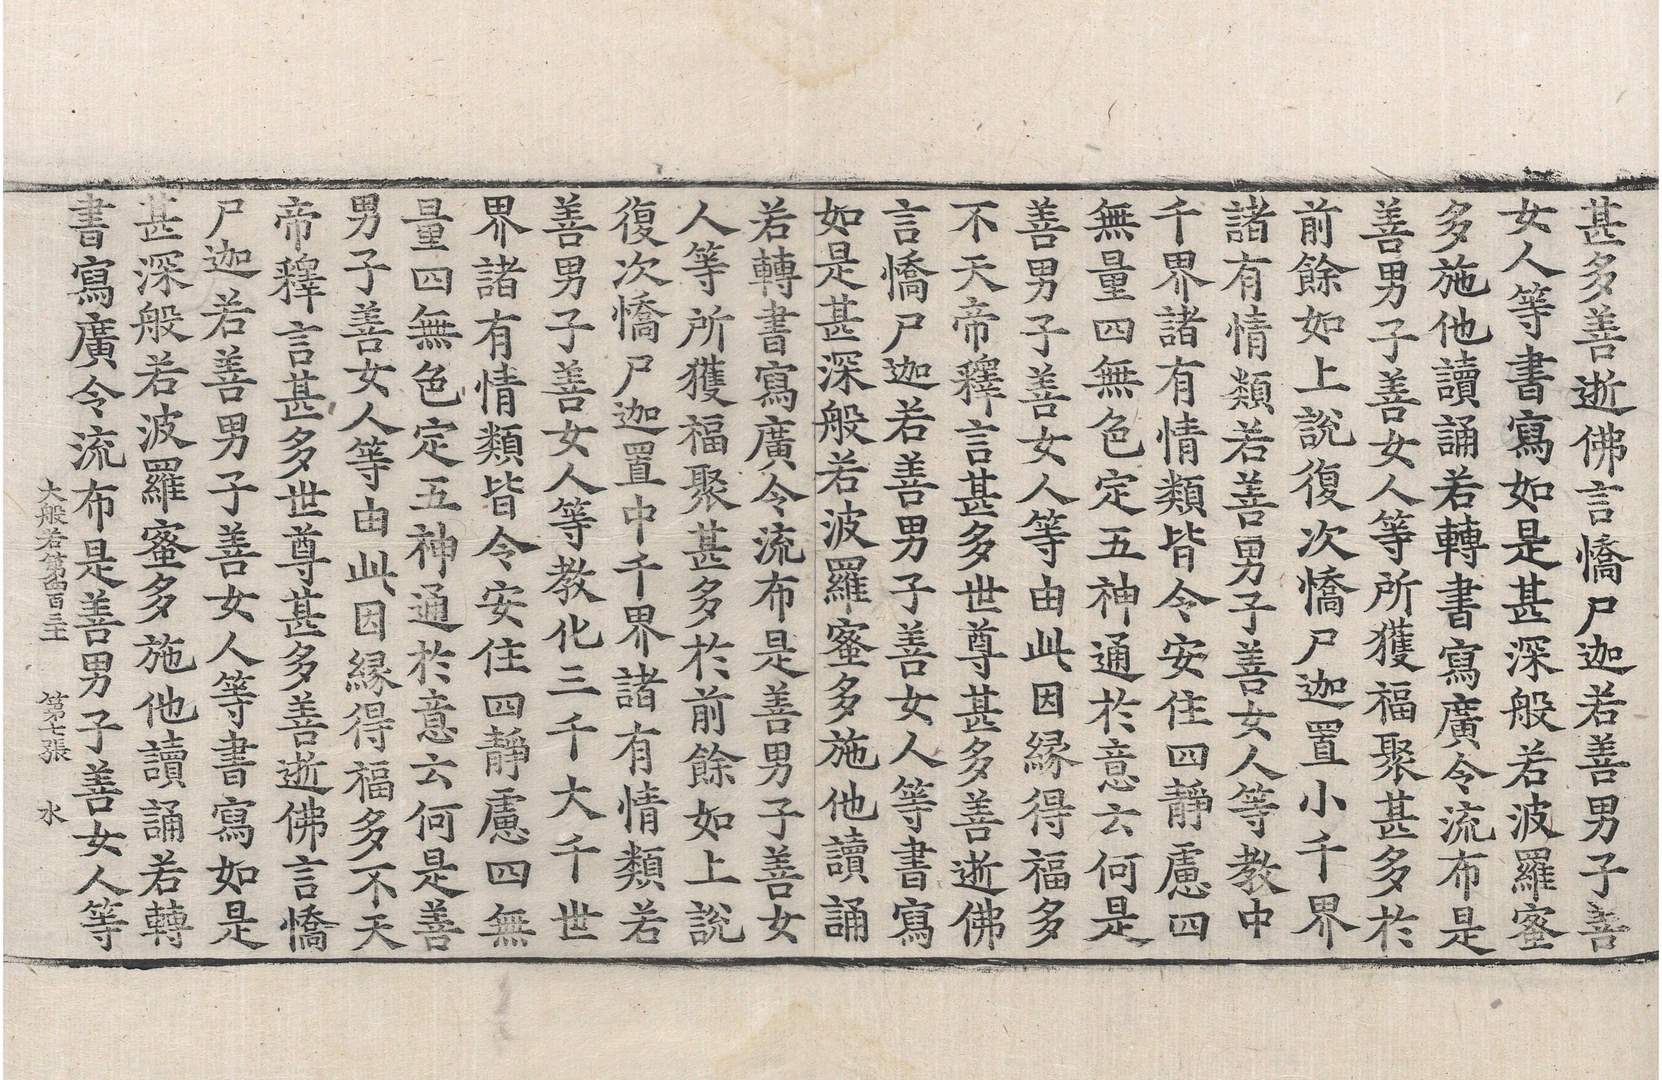 甚多善逝佛言憍尸迦若善男子善
女人等書寫如是甚深般若波羅蜜
多施他讀誦若轉書寫廣令流布是
善男子善女人等所獲福聚甚多於
前餘如上說復次憍尸迦置小千界
諸有情類若善男子善女人等教中
千界諸有情類皆令安住四靜慮四
無量四無色定五神通於意云何是
善男子善女人等由此因緣得福多
不天帝釋言甚多世尊甚多善逝佛
言憍尸迦若善男子善女人等書寫
如是甚深般若波羅蜜多施他讀誦
若轉書寫廣令流布是善男子善女
人等所獲福聚甚多於前餘如上說
復次憍尸迦置中千界諸有情類若
善男子善女人等教化三千大千世
界諸有情類皆令安住四靜慮四無
量四無色定五神通於意云何是善
男子善女人等由此因緣得福多不天
帝釋言甚多世尊甚多善逝佛言憍
尸迦若善男子善女人等書寫如是
甚深般若波羅蜜多施他讀誦若轉
書寫廣令流布是善男子善女人等
大般若第四百三十 第七張 水